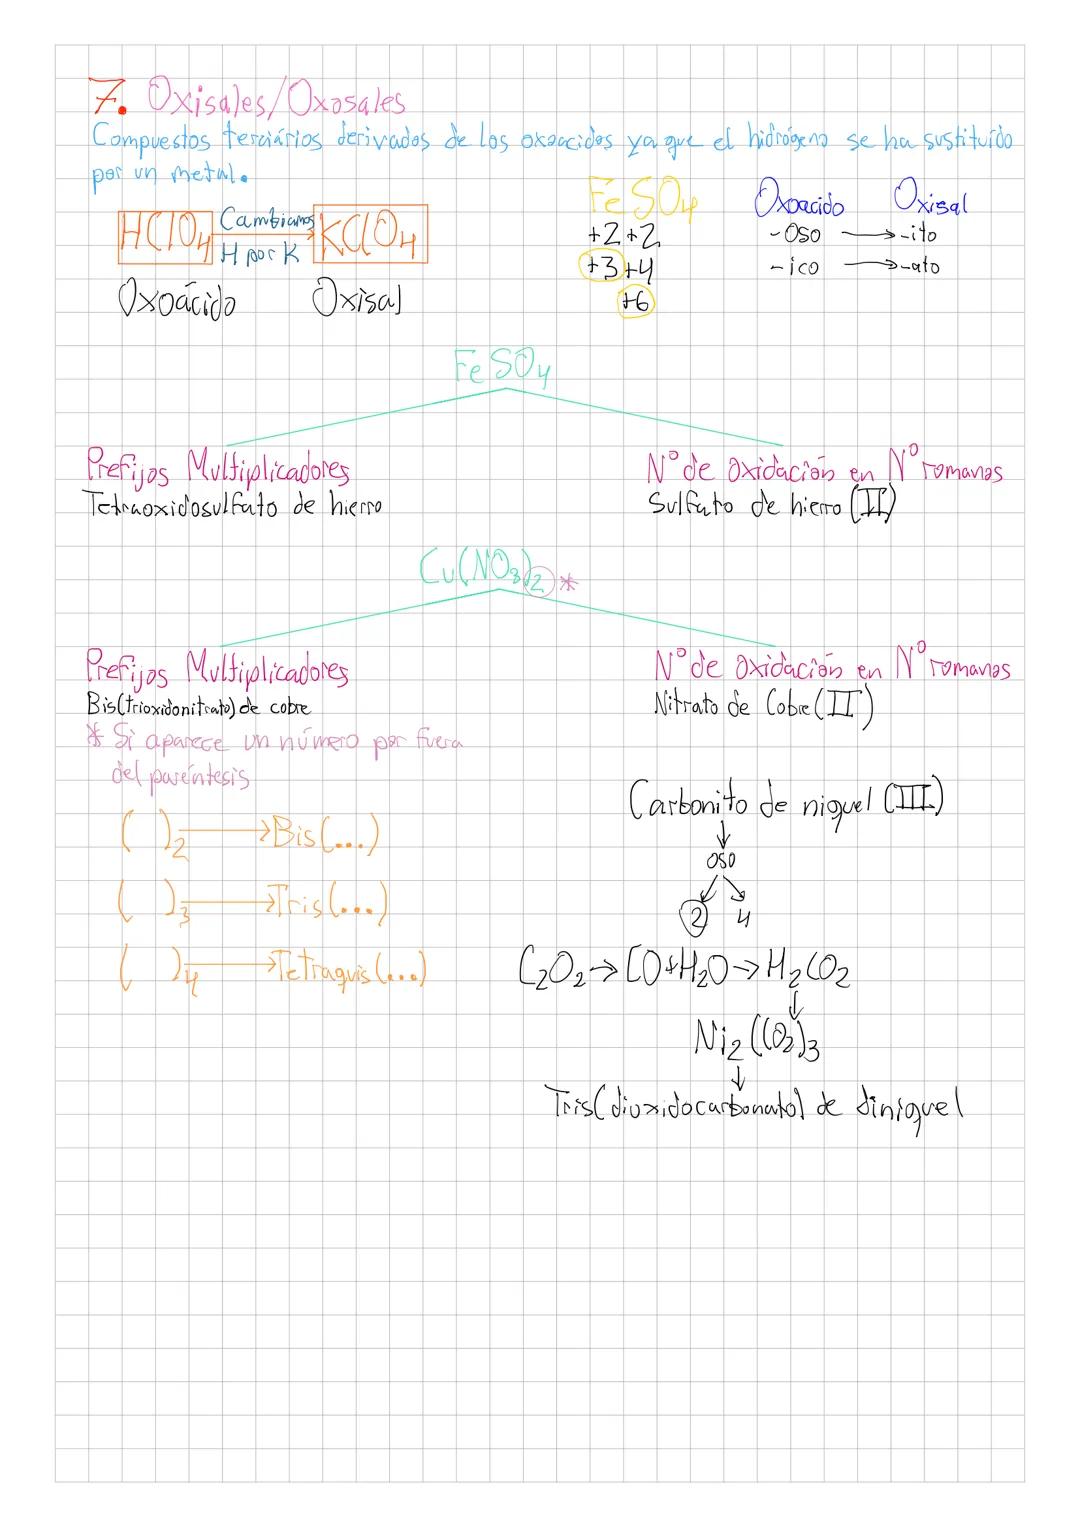 7. Oxisales/Oxosales
Compuestos terciários derivados de los oxoacidos ya que el hidrógeno se ha sustituído
por un metal.
HClO4 Cambiamos H por K KClO4
Oxoácido Oxisal
FeSO4
+2 +2
+3 +4
+6
Oxoacido Oxisal
-oso → -ito
-ico → -ato
FeSO4
Prefijos Multiplicadores
Tetraoxidosulfato de hierro
Nº de oxidación en Nº romanos
Sulfato de hierro (II)
Cu(NO3)2 *
Prefijos Multiplicadores
Bis(trioxidonitrato) de cobre
* Si aparece un número por fuera
del paréntesis
( )2 → Bis(...)
( )3 → Tris(...)
( )4 → Tetraquis(...)
Nº de oxidación en Nº romanos
Nitrato de Cobre (II)
Carbonito de niquel (III)
↓
oso
2 4
C2O2 → CO + H2O → H2CO2
↓
Ni2(CO2)3
↓
Tris(dioxidocarbonato) de diniquel